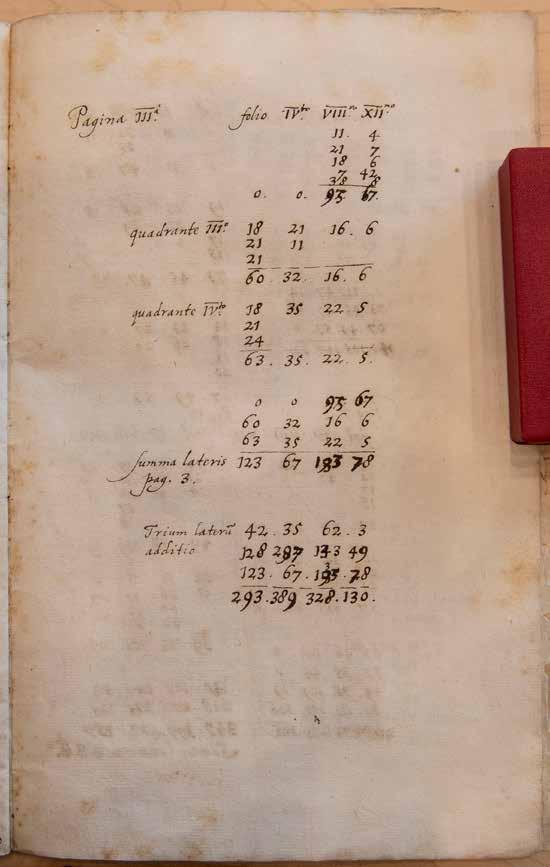 Pagina III.ª folio IV.to VIII.vo XII.mo
11. 4
21 7
18 6
7 42
38 8
0. 0. 95 67.
quadrante III.o 18 21 16. 6
21 11
21
60. 32. 16. 6
quadrante IV.to 18 35 22 5
21
24
63. 35. 22. 5.
0 0 95 67
60 32 16 6
63 35 22 5
summa lateris 123 67 133 78
pag. 3.
Trium laterū 42. 35 62. 3
additio 128 287 133 49
123. 67. 133. 78
293. 389 328. 130.